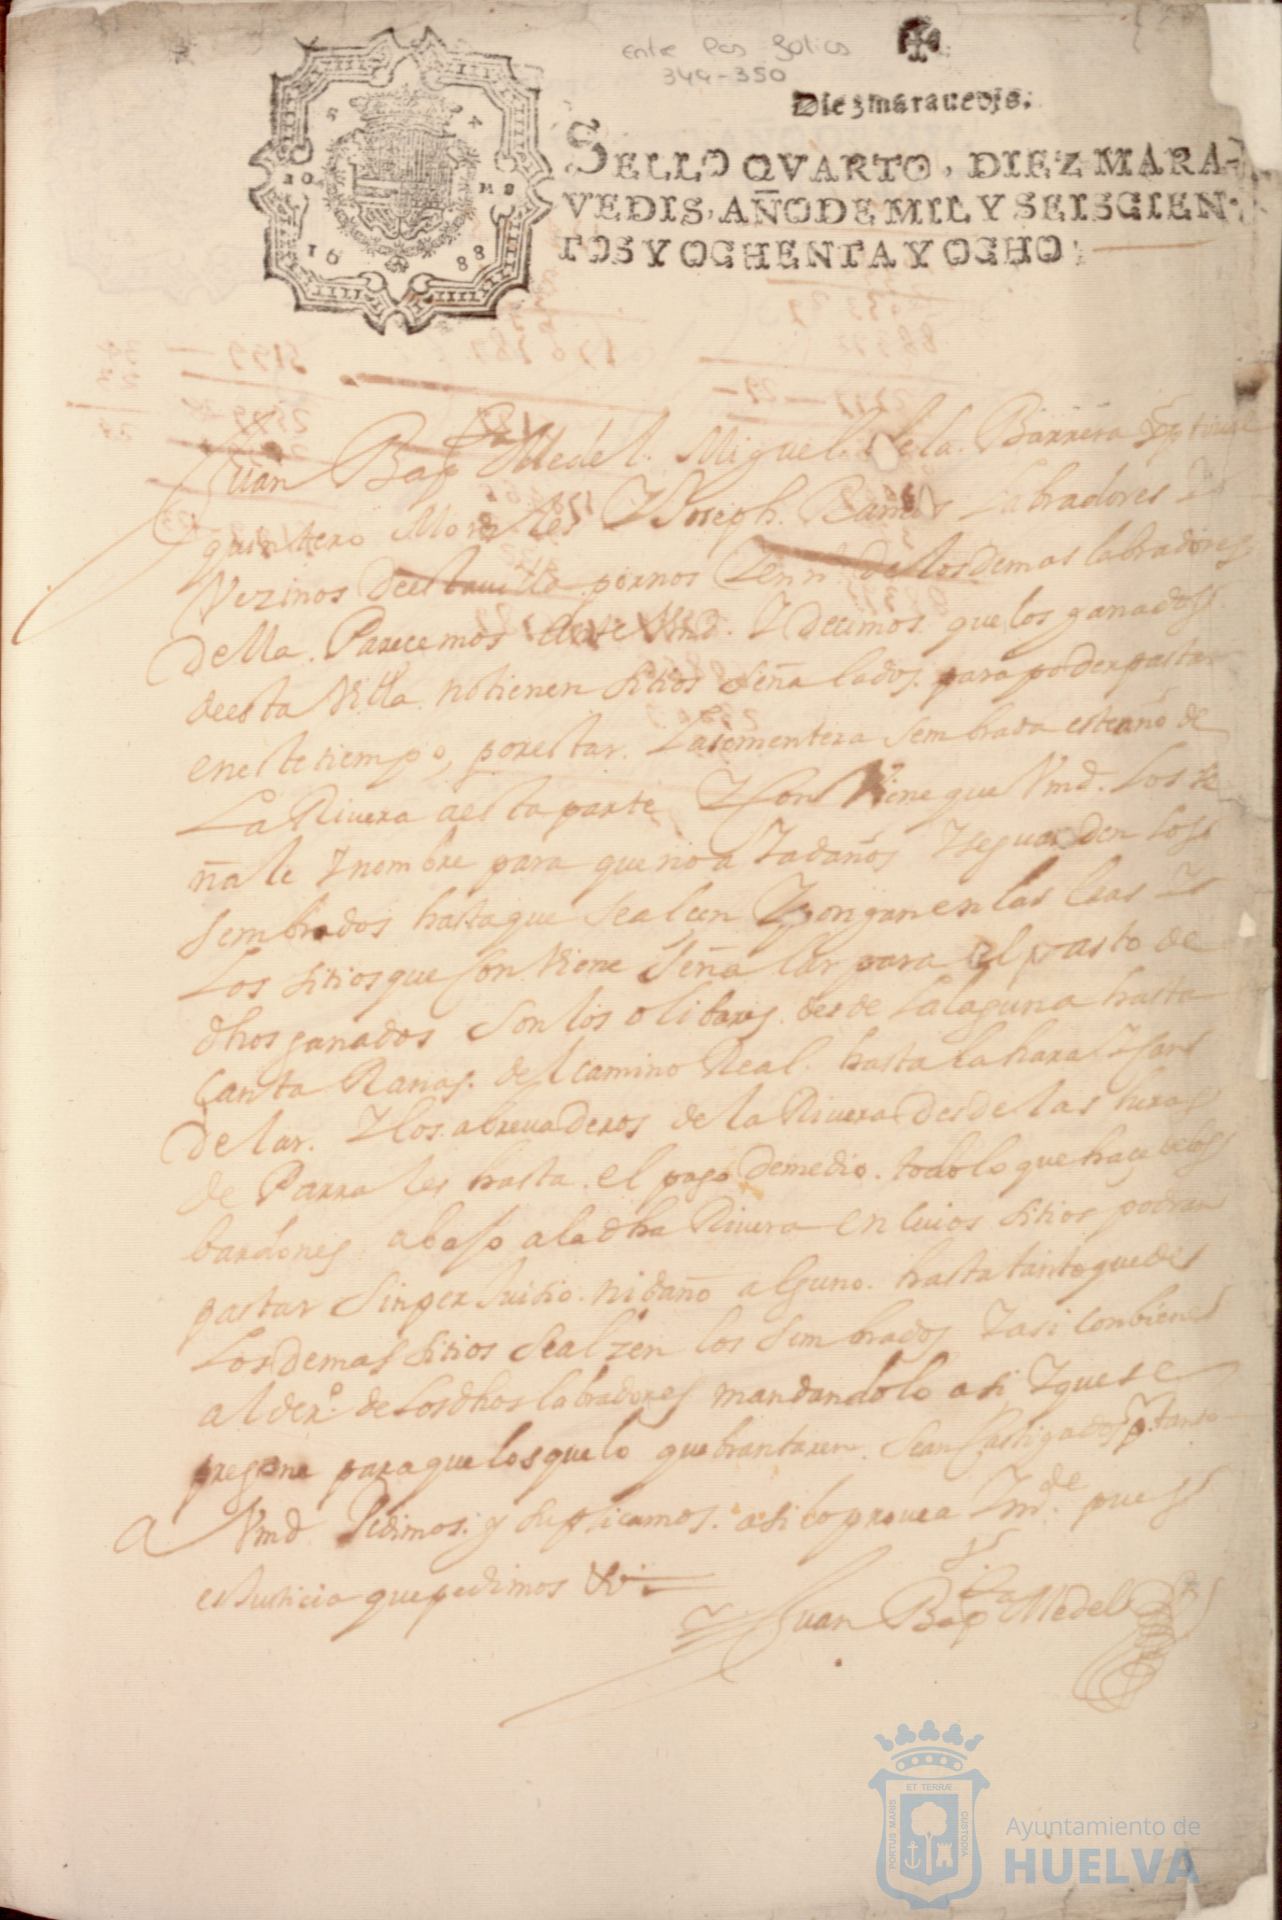 entre Pas Folios
344-350
Diezmaravedis.
SELLO QVARTO, DIEZ MARA-
VEDIS, AÑO DE MIL Y SEISCIEN-
TOS Y OCHENTA Y OCHO.
16 88
Juan Bap^ta Medel. Miguel de la Barrera
quintero Morales Y Joseph. Ramos Labradores
Vezinos deesta villa por nos Y en n^e de los demas labradores
della. Parecemos Ante Vmd. Y decimos que los ganados
deesta Villa no tienen sitios señalados para poder pastar
en este tiempo, por estar. La sementera sembrada este año de
La Rivera a esta parte Y Conviene que Vmd. Los se
ñale Y nombre para que no a Ya daños Y se guarden los
sembrados hasta que se alcen Y pongan en las
Los sitios que conviene señalar para el pasto de
dhos ganados son los olibares desde la laguna hasta
Canta Ranas. del camino Real. hasta
Y los abrevaderos de la Rivera desde las
de Parrales hasta el pago Demedio. todo lo que hace
bardones abajo a la dha Rivera en cuios sitios podran
pastar sin perjuicio ni daño alguno. hasta tanto que de
Los demas sitios se alzen los sembrados Y asi conbiene
al der^o de los dhos labradores mandandolo asi Y que se
pregone para que los que lo quebrantaren sean Castigados p^r tanto
A Vmd Pedimos y suplicamos asi lo provea Y m^de pues
es Justicia que pedimos &^a
Juan Bap^ta Medel
ET TERRÆ
PORTUS MARIS
CUSTODIA
Ayuntamiento de
HUELVA